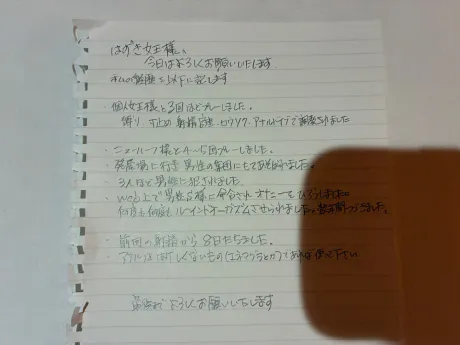 はずき女王様、
今日はよろしくお願いいたします
私の経歴を以下に記します
・個人女王様と3回ほどプレーしました。
縛り、寸止め 射精 ロウソク、アナル で調教されました
・ニューハーフ様と4~5回プレーしました。
・発展場に行き 男性の
・3人ほど男性に犯されました。
・web上で 命令されオナニーを ひろうしました。
何度も何度も ルーインドオーガズムさせられました。
・前回の射精から8日たちました。
・アナルは 激しくないもの(エネマグラとか)であれば使って下さい
よろしくお願いいたします